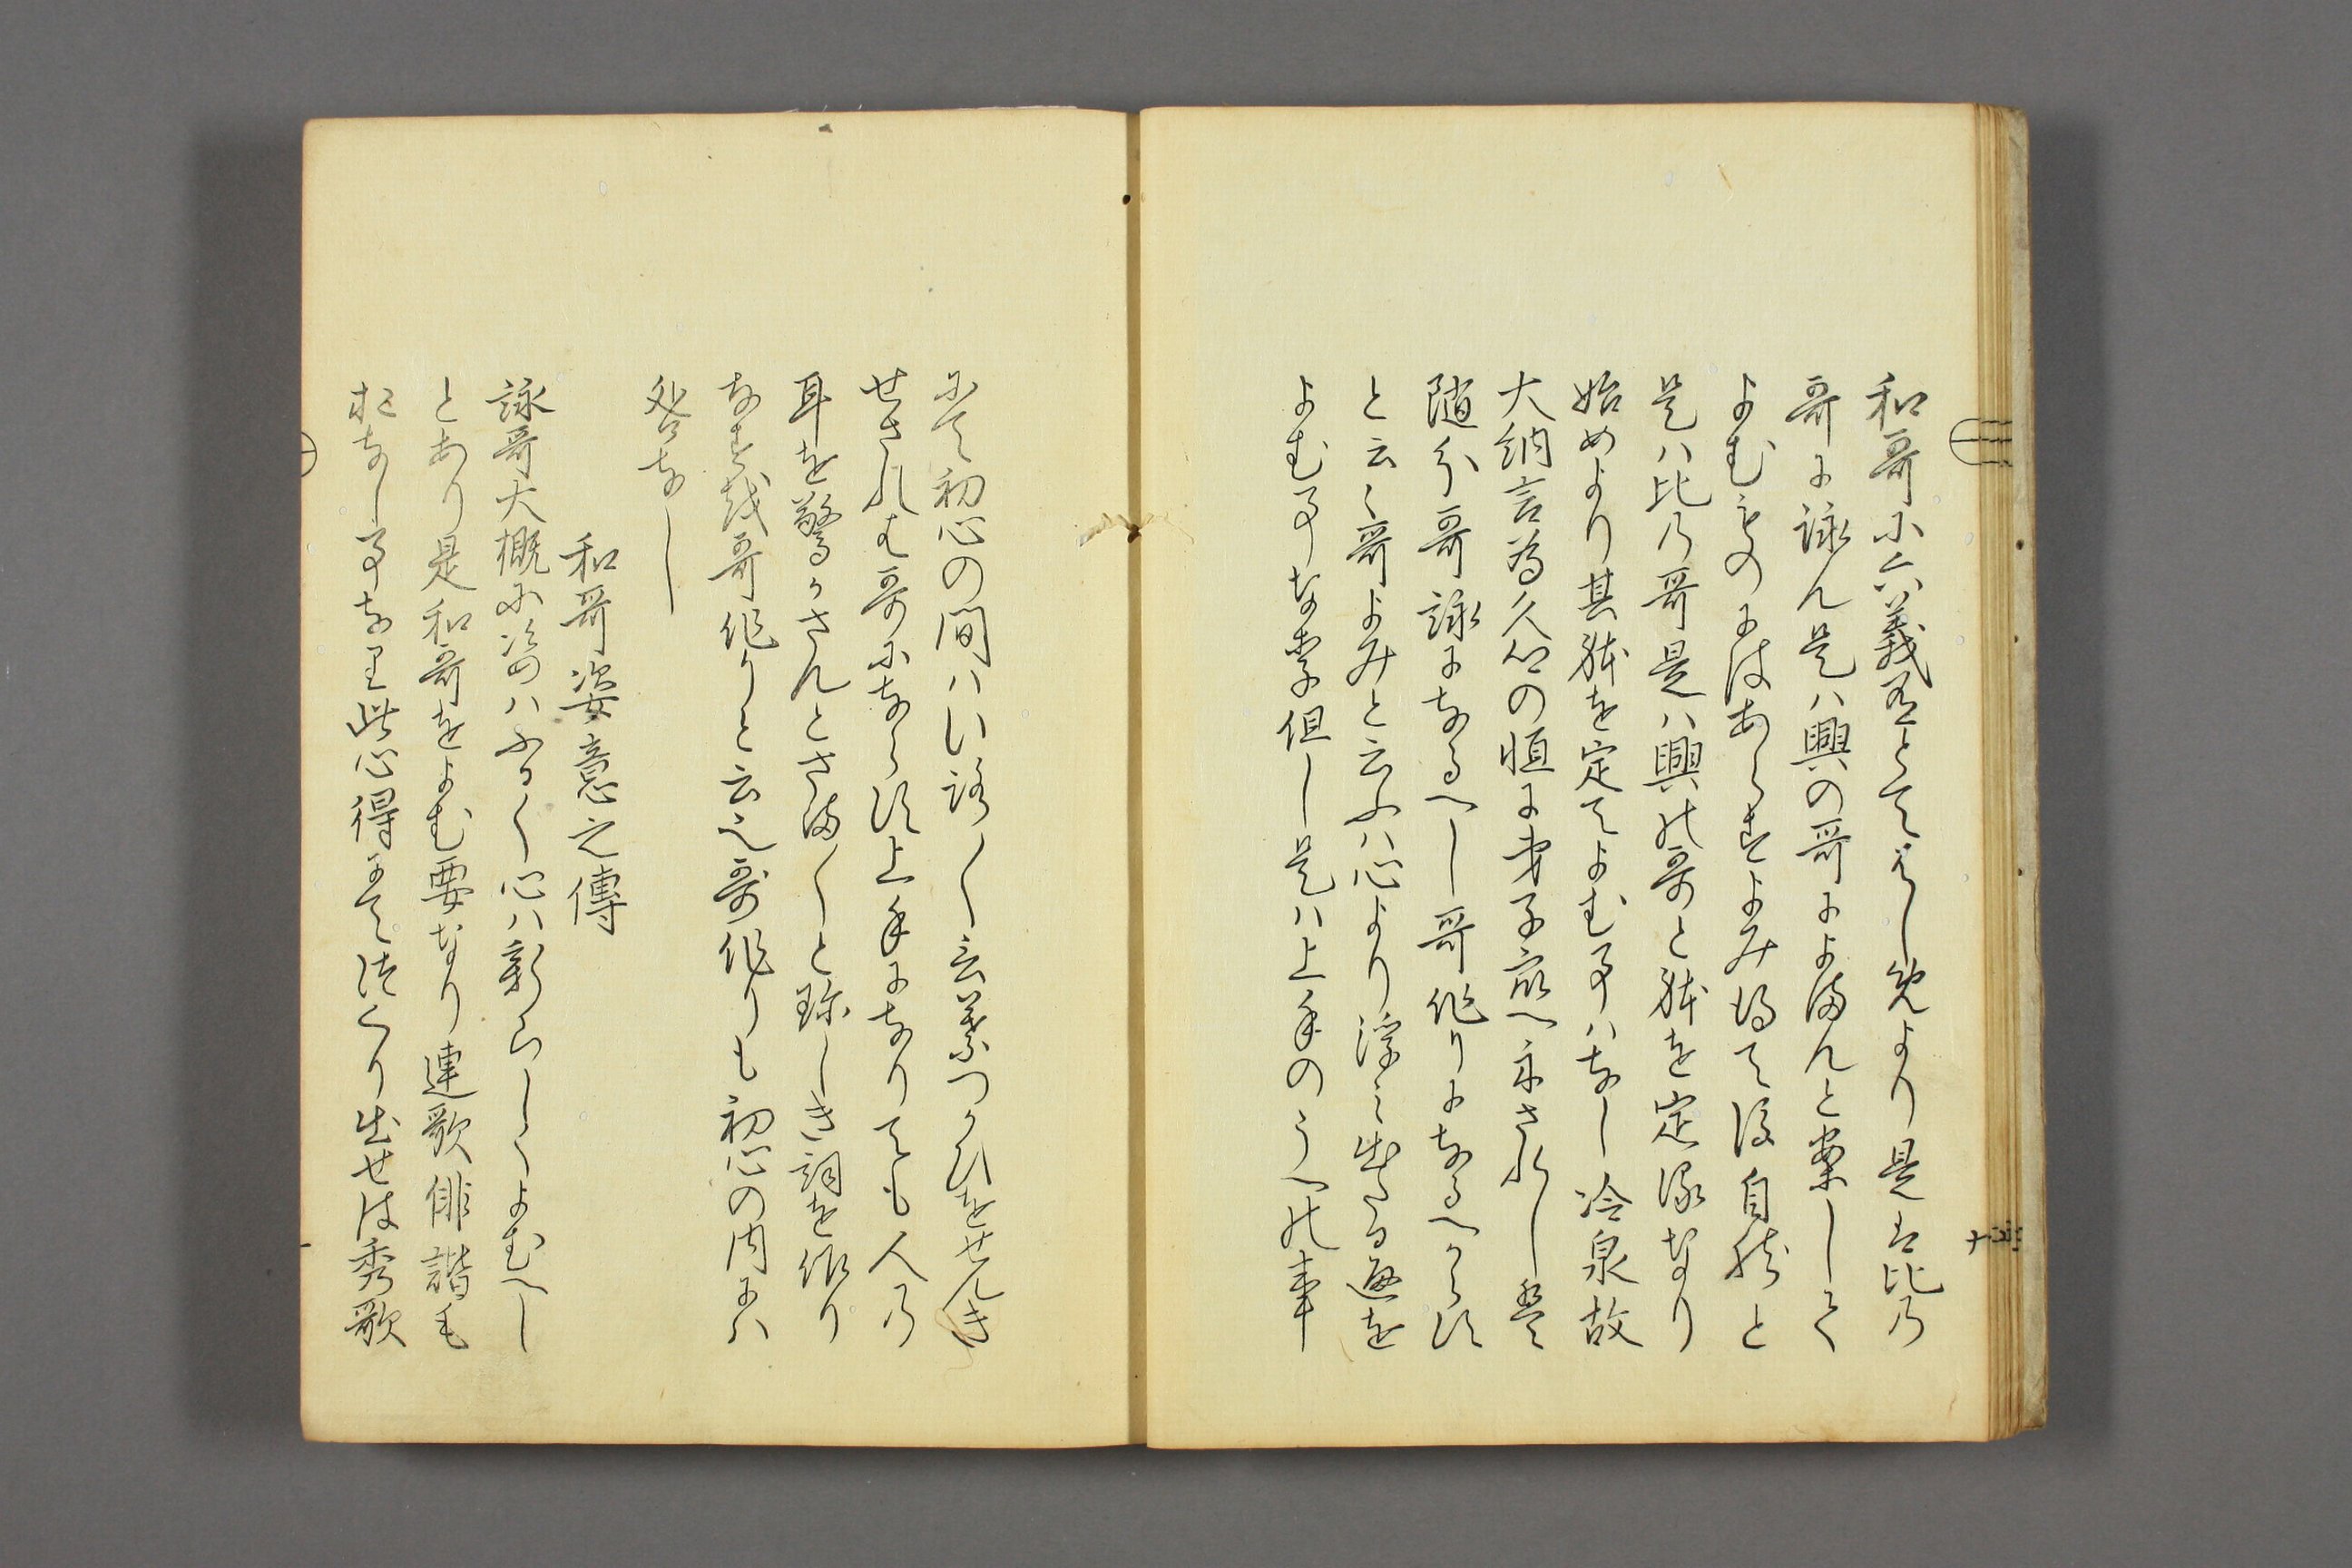 和哥に六義有とてはしめより是は比の
哥に詠ん是ハ興の哥によまんと案して
よむものにはあらすよみ得て後自然と
是ハ比の哥是ハ興の哥と躰を定るなり
始めより其躰を定てよむ事ハなし冷泉故
大納言為久公の恒に弟子衆へ示されしは
随分哥詠になるへし哥作りになるへからす
と云々哥よみと云ふハ心より浮ミ出たる趣を
よむ事なり但し是ハ上手のうへの事
にて初心の間ハいろ〱言葉つかひをせんき
せされは哥にならす上手になりても人の
耳を驚かさんとさま〱と珍しき詞を作り
なすを哥作りと云也哥作りも初心の内にハ
咎なし
和哥姿意之傳
詠哥大概に姿ハふるく心ハ新らしくよむへし
とあり是和哥をよむ要なり連歌俳諧も
おなし事なり此心得にてつくり出せは秀歌